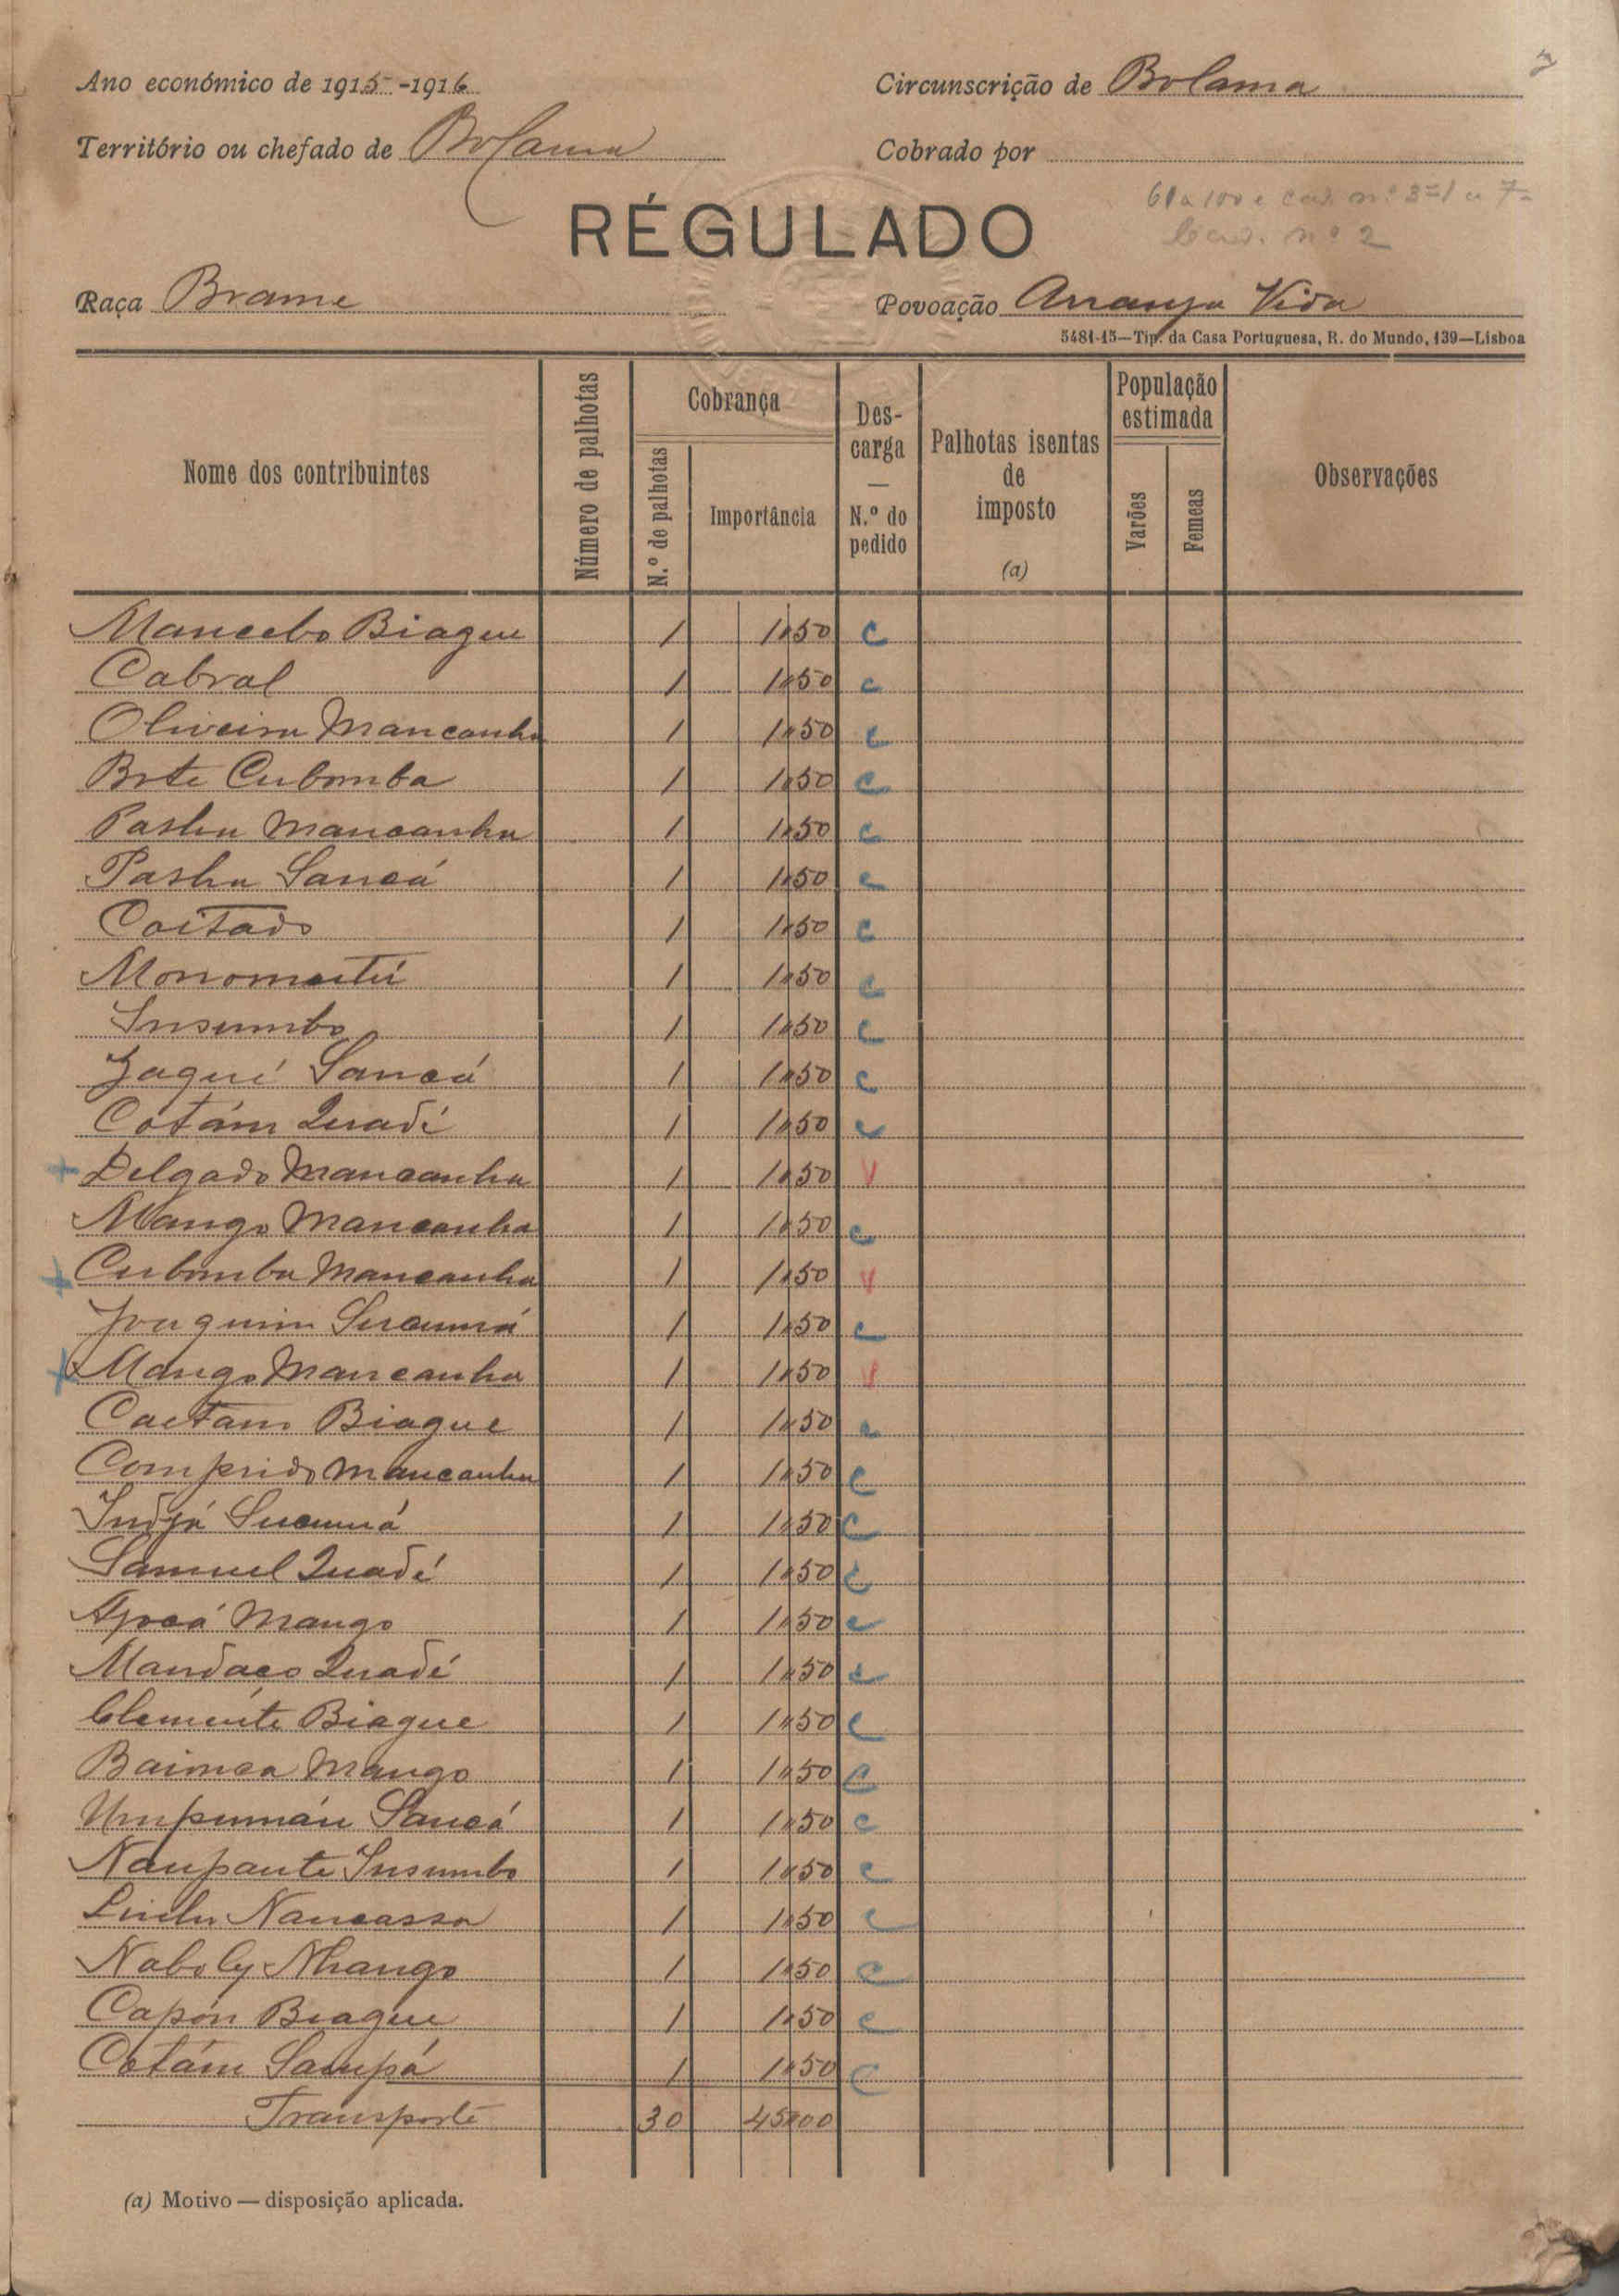 Ano económico de 1915-1916
Circunscrição de Bolama
Território ou chefado de Bolama
Cobrado por
61 a 100 e cad. nº 3=1 a 7-
Cad. nº 2
RÉGULADO
Raça Brame
Povoação Arranja Vida
5481-15—Tip. da Casa Portuguesa, R. do Mundo, 139—Lisboa
Nome dos contribuintes
Número de palhotas
Cobrança
N.º de palhotas
Importância
Des-
carga
—
N.º do
pedido
Palhotas isentas
de
imposto
(a)
População
estimada
Varões
Femeas
Observações
Mancebo Biague 1 1$50 C
Cabral 1 1$50 C
Oliveira Mancanha 1 1$50 C
Bote Cubomba 1 1$50 C
Pasha Mancanha 1 1$50 C
Pasha Sancá 1 1$50 C
Coitado 1 1$50 C
1 1$50 C
Insumbo 1 1$50 C
Jaquí Sancá 1 1$50 C
Cotám Quadé 1 1$50 C
+ Delgado Mancanha 1 1$50 V
Mango Mancanha 1 1$50 C
+ Cubomba Mancanha 1 1$50 V
Joaquim Sucumá 1 1$50 C
+ Mango Mancanha 1 1$50 V
Caetano Biague 1 1$50 C
Comprido Mancanha 1 1$50 C
Indjá Sucumá 1 1$50 C
Samuel Quadé 1 1$50 C
Mango 1 1$50 C
Mandaco Quadé 1 1$50 C
Clemente Biague 1 1$50 C
Baimca Mango 1 1$50 C
Umpumán Sancá 1 1$50 C
Naupante Insumbo 1 1$50 C
Nancassa 1 1$50 C
Naboly Nhango 1 1$50 C
Capón Biague 1 1$50 C
Cotám Sampá 1 1$50 C
Transporte 30 45$00
(a) Motivo — disposição aplicada.